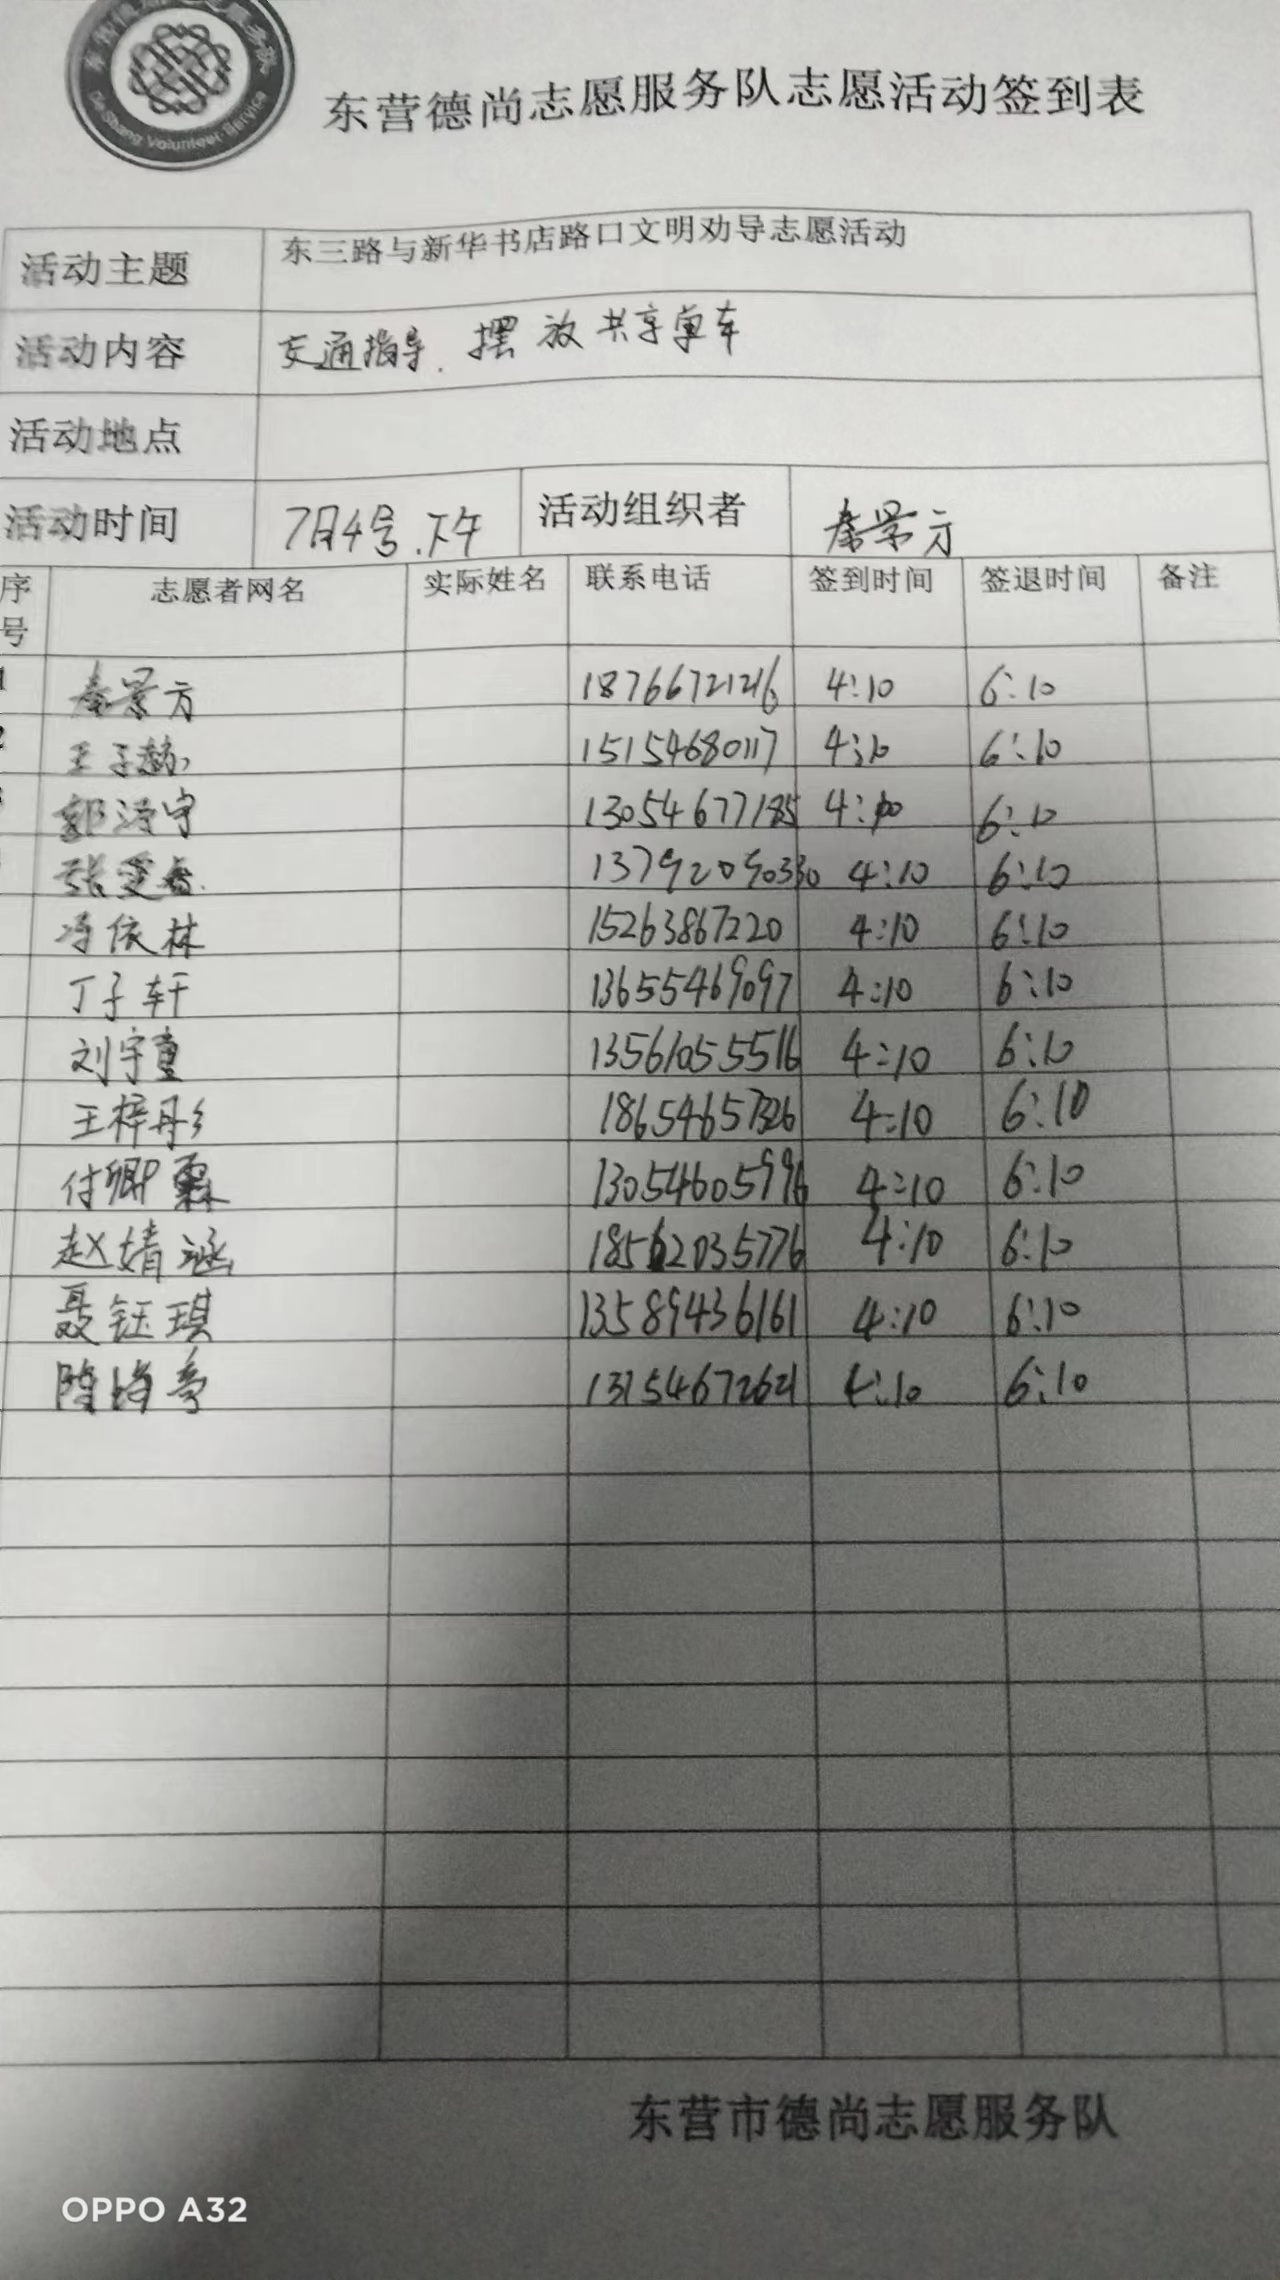 De Shang Volunteer Service
东营德尚志愿服务队志愿活动签到表
活动主题 东三路与新华书店路口文明劝导志愿活动
活动内容 交通指导.摆放共享单车
活动地点
活动时间 7月4号.下午 活动组织者 秦景方
序号 志愿者网名 实际姓名 联系电话 签到时间 签退时间 备注
1 秦景方 4:10 6:10
2 15154680117 4:10 6:10
13054677185 4:10 6:10
4:10 6:10
冯依林 15263867220 4:10 6:10
丁子轩 13655469097 4:10 6:10
刘宇童 13561055516 4:10 6:10
王梓彤 18654657326 4:10 6:10
付卿霖 13054605996 4:10 6:10
赵婧涵 18562035776 4:10 6:10
聂钰琪 13589436161 4:10 6:10
4:10 6:10
东营市德尚志愿服务队
OPPO A32